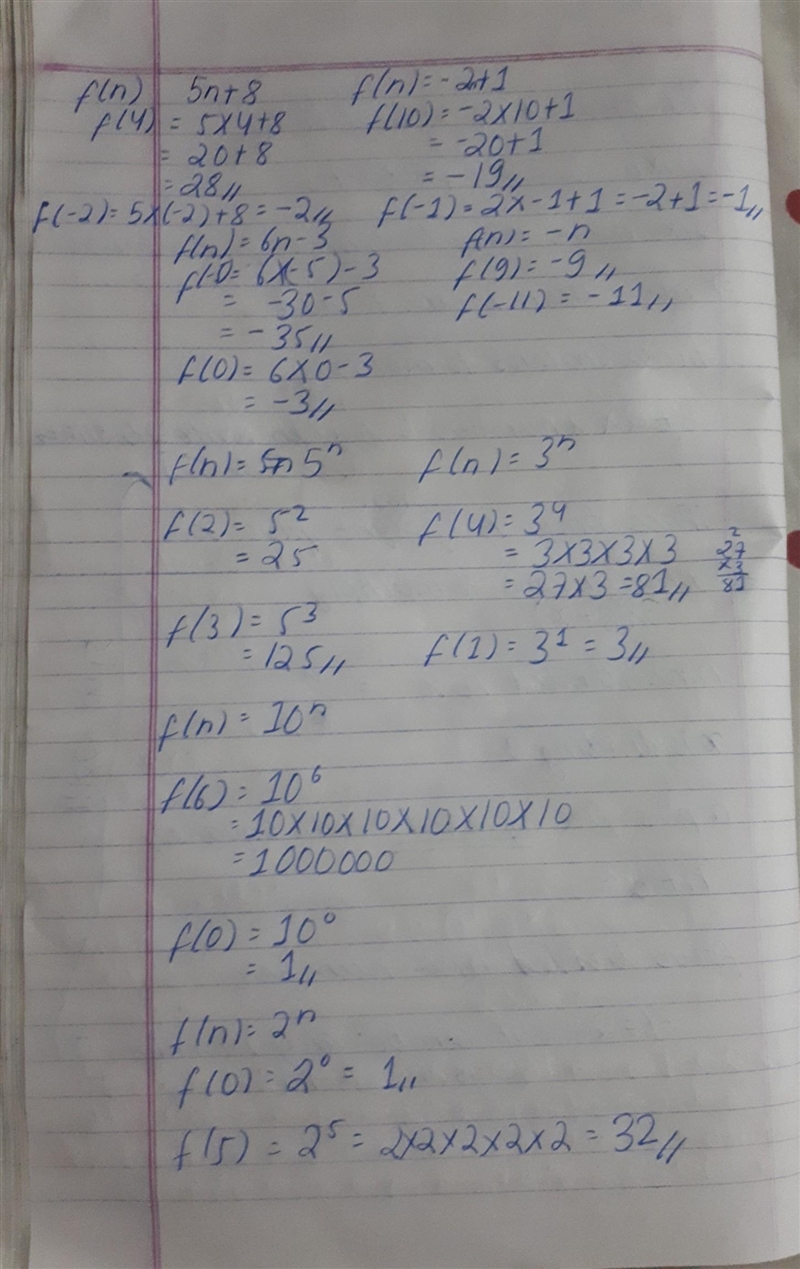 f(n) 5n+8
f(4) = 5×4+8
= 20+8
= 28//
f(-2) = 5×(-2)+8 = -2//
f(n) = -2n+1
f(10) = -2×10+1
= -20+1
= -19//
f(-1) = 2×-1+1 = -2+1 = -1//
f(n) = 6n-3
= 6(×-5)-3
= -30-5
= -35//
f(0) = 6×0-3
= -3//
f(n) = -n
f(9) = -9//
f(-11) = -11//
f(n) = 5ⁿ
f(2) = 5²
= 25
f(3) = 5³
= 125//
f(n) = 3ⁿ
f(4) = 3⁴
= 3×3×3×3
= 27×3 = 81//
2
27
×3
81
f(1) = 3¹ = 3//
f(n) = 10ⁿ
f(6) = 10⁶
= 10×10×10×10×10×10
= 1000000
f(0) = 10⁰
= 1//
f(n) = 2ⁿ
f(0) = 2⁰ = 1//
f(5) = 2⁵ = 2×2×2×2×2 = 32//